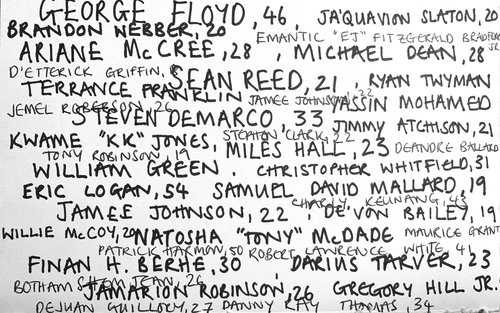 GEORGE FLOYD, 46, JA'QUAVION SLATON, 20
BRANDON WEBBER, 20
EMANTIC "EJ" FITZGERALD BRADFORD JR
ARIANE McCREE, 28, MICHAEL DEAN, 28
D'ETTERICK GRIFFIN, SEAN REED, 21, RYAN TWYMAN
TERRANCE FRANKLIN JAMEE JOHNSON, 22 YASSIN MOHAMED
JEMEL ROBERSON, 26
STEVEN DEMARCO, 33 JIMMY ATCHISON, 21
KWAME "KK" JONES, STEPHON CLARK, 22 MILES HALL, 23 DEANDRE BALLARD
TONY ROBINSON, 19
WILLIAM GREEN, CHRISTOPHER WHITFIELD, 31
ERIC LOGAN, 54 SAMUEL DAVID MALLARD, 19
CHARLY KEUNANG, 43
JAMEE JOHNSON, 22, DE'VON BAILEY, 19
WILLIE McCOY, 20 NATOSHA "TONY" McDADE MAURICE GRANT
PATRICK HARMON, 50 ROBERT LAWRENCE WHITE, 41
FINAN H. BERHE, 30, DARIUS TARVER, 23
BOTHAM SHEM JEAN, 26
JAMARION ROBINSON, 26 GREGORY HILL JR.
DEJUAN GUILLORY, 27 DANNY RAY THOMAS, 34